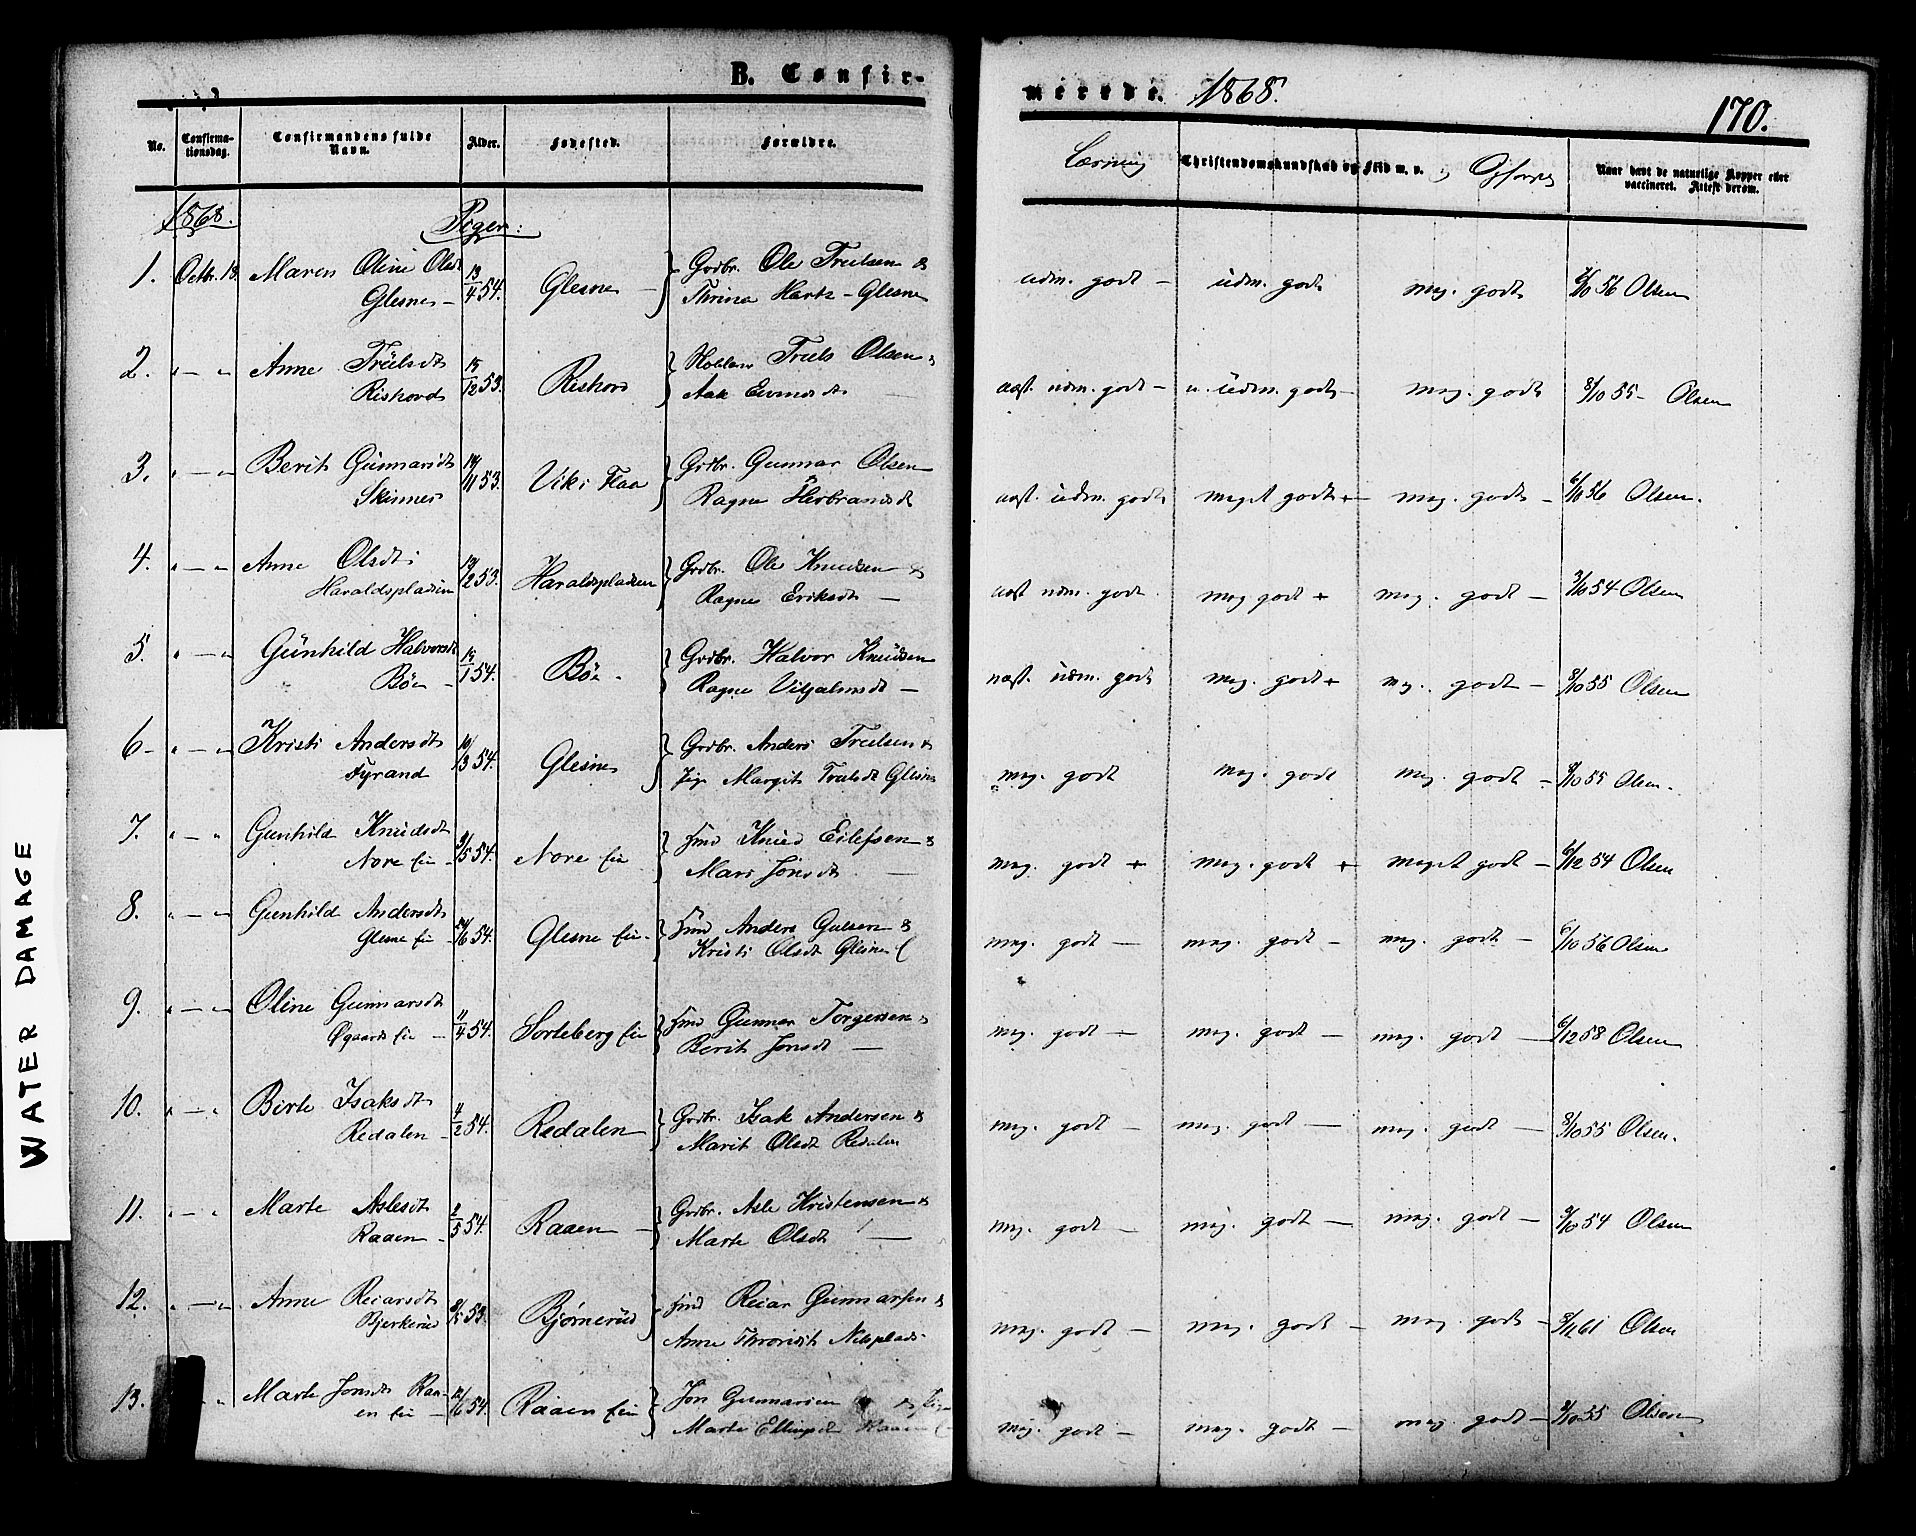 B. Confirmerede. 1868.
170.
No.
Confirmationsdag.
Confirmandens fulde Navn.
Alder.
Fødested.
Forældre.
Lærning
Christendomskundskab og Flid m. v.
Naar havt de naturlige Kopper eller vaccineret. Attest derom.
1868.
Piger:
1. Octbr. 18. Maren Oline Olsdt 13/4 54. Glesne – Grdbr. Ole Truelsen & udm. godt – udm. godt meg. godt 56 Olsen
Glesne – Thrina Hartz – Glesne
2. " — " Anne Truelsdt 15/12 53. Rishovd Truels Olsen & næst. udm. godt – n. udm. godt – meg. godt 8/10 55 – Olsen
Rishovd
3. " — " Berit Gunnarsdt 53. Vik i Flaa Grdbr. Gunnar Olsen næst. udm. godt meget godt + meg. godt – 6/10 56 Olsen.
Skinnes Ragne Herbrandsdt
4. " — " Anne Olsdt 53. Haraldspladsen Grdbr. Ole Knudsen & næst udm. godt meg godt + meg. godt – 54 Olsen
Haraldspladsen Ragne Eriksdt —
5. " — " Gunhild Halvorsdt 15/1 54. Bøe – Grdbr. Halvor Knudsen næst. udm. godt meg. godt + meg. godt – 8/10 55 Olsen
Bøe – Ragne Viljalmsdt —
6 – " — " Kristi Andersdt 54. Glesne Grdbr. Anders Truelsen & meg. godt meg. godt meg. godt – 8/10 55 Olsen.
Fyrand Pige Margit Truelsdt Glesne
7. " — " Gunhild Knudsdt 54. Nore eie Hmd Knud Eilefsen & meg. godt + meg. godt + meget godt – 6/12 54 Olsen
Nore eie – Mari Jonsdt —
8. " — " Gunhild Andersdt 54. Glesne eie – Hmd Anders & meg. godt — meg. godt – meg. godt – 6/10 56 Olsen
Glesne eie – Kristi Olsdt Glesne
9. " — " Oline Gunnarsdt 11/4 54. Sorteberg eie Hmd Gunnar Torgersen & meg. godt — meg. godt — meg. godt — 6/12 58 Olsen
Øgaards eie – Berit Jonsdt —
10. " — " Birte Isaksdt 4/2 54. Redalen Grdbr. Isak Andersen & meg. godt — meg. godt — meg. godt — 8/10 55 Olsen.
Redalen – Marit Olsdt Redalen
11. " — " Marte Aslesdt 2/5 54. Raaen – Grdbr. Asle Kristensen & meg. godt — meg. godt — meg. godt – 54 Olsen
Raaen – Marte Olsdt —
12. " — " Anne Reiarsdt 53. Bjørnerud Hmd Reiar Gunnarsen & meg. godt — meg. godt — meg. godt – 61 Olsen
Bjerkerud Anne Throndsdt
13. " Marte Jonsdt Raa- 54. Raaen eie Jon Gunnarsen meg. godt — meg. godt — meg. godt – 8/10 55 Olsen
en eie – Marte Ellingsdt Raaen
WATER DAMAGE